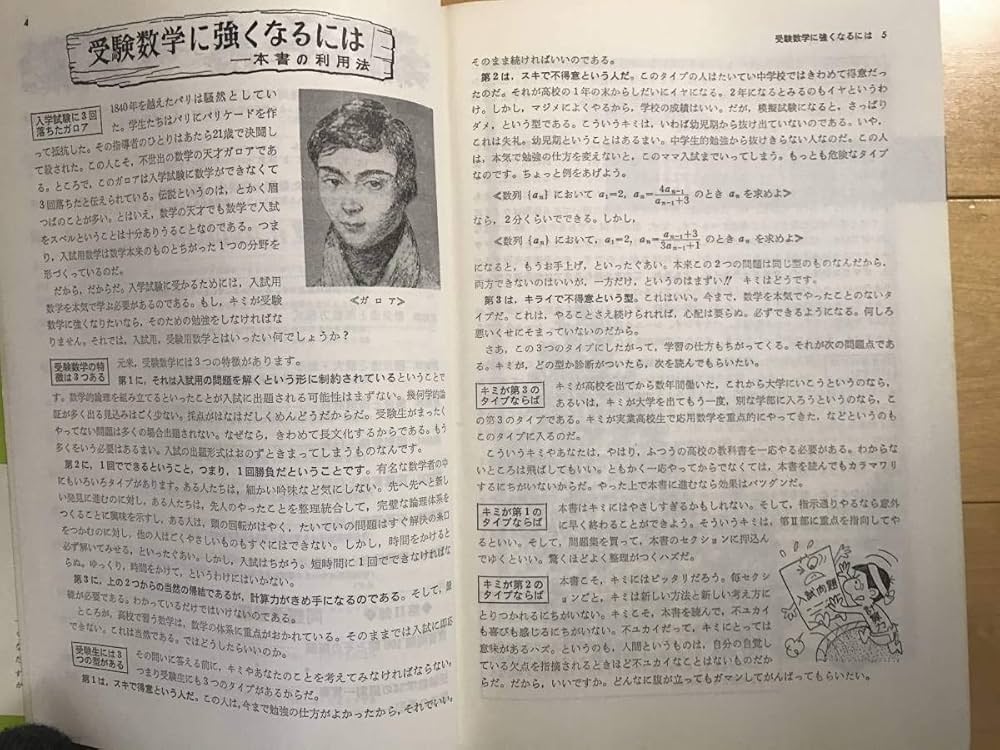 4
受験数学に強くなるには
――本書の利用法
入学試験に3回
落ちたガロア
1840年を越えたパリは騒然としてい
た。学生たちはパリにバリケードを作
って抵抗した。その指導者のひとりはあたら21歳で決闘し
て殺された。この人こそ，不世出の数学の天才ガロアであ
る。ところで，このガロアは入学試験に数学ができなくて
3回落ちたと伝えられている。伝説というのは，とかく眉
つばのことが多い。とはいえ，数学の天才でも数学で入試
をスベルということは十分ありうることなのである。つま
り，入試用数学は数学本来のものとちがった1つの分野を
形づくっているのだ。
だから，だからだ。入学試験に受かるためには，入試用
数学を本気で学ぶ必要があるのである。もし，キミが受験
数学に強くなりたいなら，そのための勉強をしなければな
りません。それでは，入試用，受験用数学とはいったい何でしょうか？
≪ガロア≫
受験数学の特
徴は3つある
元来，受験数学には3つの特徴があります。
第1に，それは入試用の問題を解くという形に制約されているということで
す。数学的論理を組み立てるといったことが入試に出題される可能性はまずない。幾何学的論
証が多く出る見込みはごく少ない。採点がはなはだしくめんどうだからだ。受験生がまったく
やってない問題は多くの場合出題されない。なぜなら，きわめて長文化するからである。もう
多くをいう必要はあるまい。入試の出題形式はおのずときまってしまうものなんです。
第2に，1回でできるということ，つまり，1回勝負だということです。有名な数学者の中
にもいろいろタイプがあります。ある人たちは，細かい吟味など気にしない。先へ先へと新し
い発見に進むのに対し，ある人たちは，先人のやったことを整理統合して，完璧な論理体系を
つくることに興味を示すし，ある人は，頭の回転がはやく，たいていの問題はすぐ解決の糸口
をつかむのに対し，他の人はごくやさしいものもすぐにはできない。しかし，時間をかけると
必ず解いてみせる，といったぐあい。しかし，入試はちがう。短時間に1回でできなければな
らぬ。ゆっくり，時間をかけて，というわけにはいかない。
第3に，上の2つからの当然の帰結であるが，計算力がきめ手になるのである。そして，
能が必要である。わかっているだけではいけないのである。
ところが，高校で習う数学は，数学の体系に重点がおかれている。そのままでは入試に即応
できない。これは当然である。ではどうしたらいいのか。
受験生には3
つの型がある
その問いに答える前に，キミやあなたのことを考えてみなければならない。
つまり受験生にも3つのタイプがあるからだ。
第1は，スキで得意という人だ。この人は，今まで勉強の仕方がよかったから，それでいい。
受験数学に強くなるには 5
そのまま続ければいいのである。
第2は，スキで不得意という人だ。このタイプの人はたいてい中学校ではきわめて得意だっ
たのだ。それが高校の1年の末からしだいにイヤになる。2年になるとみるのもイヤというわ
け。しかし，マジメによくやるから，学校の成績はいい。だが，模擬試験になると，さっぱり
ダメ，という型である。こういうキミは，いわば幼児期から抜け出ていないのである。いや，
これは失礼。幼児期ということはあるまい。中学生的勉強から抜けきらない人なのだ。この人
は，本気で勉強の仕方を変えないと，このママ入試までいってしまう。もっとも危険なタイプ
なのです。ちょっと例をあげよう。
≪数列 {aₙ} において a₁=2, aₙ=4aₙ₋₁/(aₙ₋₁+3) のとき aₙ を求めよ≫
なら，2分くらいでできる。しかし，
≪数列 {aₙ} において，a₁=2, aₙ=(aₙ₋₁+3)/(3aₙ₋₁+1) のとき aₙ を求めよ≫
になると，もうお手上げ，といったぐあい。本来この2つの問題は同じ型のものなんだから，
両方できないのはいいが，一方だけ，というのはまずい!! キミはどうです。
第3は，キライで不得意という型。これはいい。今まで，数学を本気でやったことのないタ
イプだ。これは，やることさえ続けられれば，心配は要らぬ。必ずできるようになる。何しろ
悪いくせにそまっていないのだから。
さあ，この3つのタイプにしたがって，学習の仕方もちがってくる。それが次の問題点であ
る。キミが，どの型か診断がついたら，次を読んでもらいたい。
キミが第3の
タイプならば
キミが高校を出てから数年間働いた，これから大学にいこうというのなら，
あるいは，キミが大学を出てもう一度，別な学部に入ろうというのなら，こ
の第3のタイプである。キミが実業高校生で応用数学を重点的にやってきた，などというのも
このタイプに入るのだ。
こういうキミやあなたは，やはり，ふつうの高校の教科書を一応やる必要がある。わからな
いところは飛ばしてもいい。ともかく一応やってからでなくては，本書を読んでもカラマワリ
するにちがいないからだ。やった上で本書に進むなら効果はバツグンだ。
キミが第1の
タイプならば
本書はキミにはやさしすぎるかもしれない。そして，指示通りやるなら意外
に早く終わることができよう。そういうキミは，第II部に重点を指向してや
るといい。そして，問題集を買って，本書のセクションに押込ん
でゆくといい。驚くほどよく整理がつくハズだ。
キミが第2の
タイプならば
本書こそ，キミにはピッタリだろう。毎セクシ
ョンごと，キミは新しい方法と新しい考え方に
とりつかれるにちがいない。キミこそ，本書を読んで，不ユカイ
も喜びも感じるにちがいない。不ユカイだって，キミにとっては
意味があるハズ。というのも，人間というものは，自分の自覚し
ている欠点を指摘されるときほど不ユカイなことはないものだか
らだ。だから，いいですか。どんなに腹が立ってもガマンしてがんばってもらいたい。
入試問題